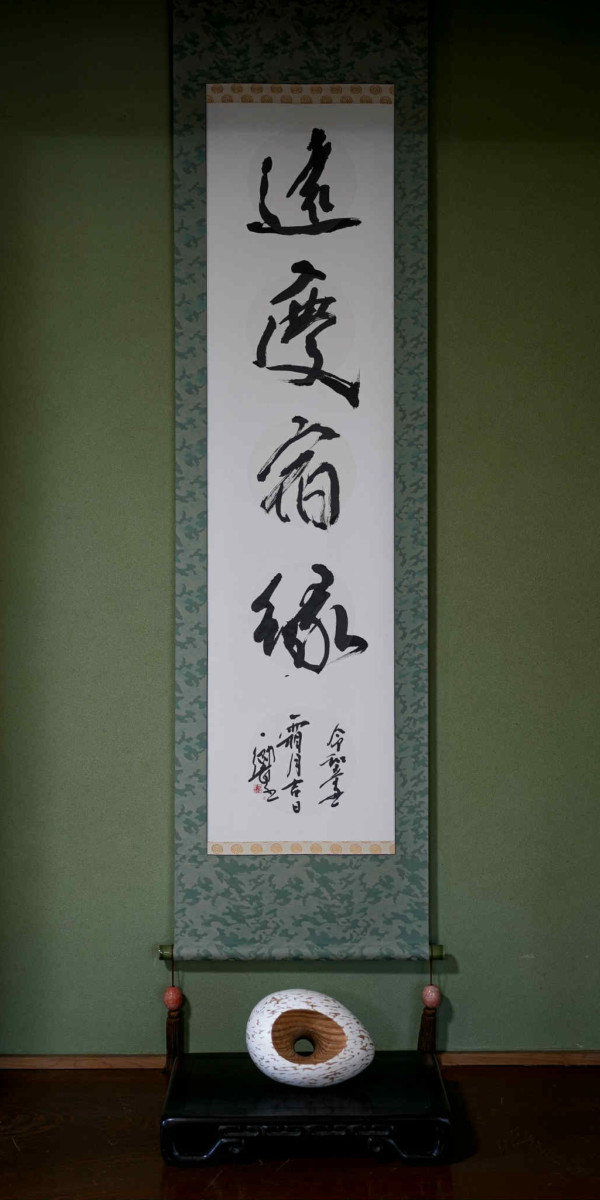 遠慶宿縁
令和
霜月吉日